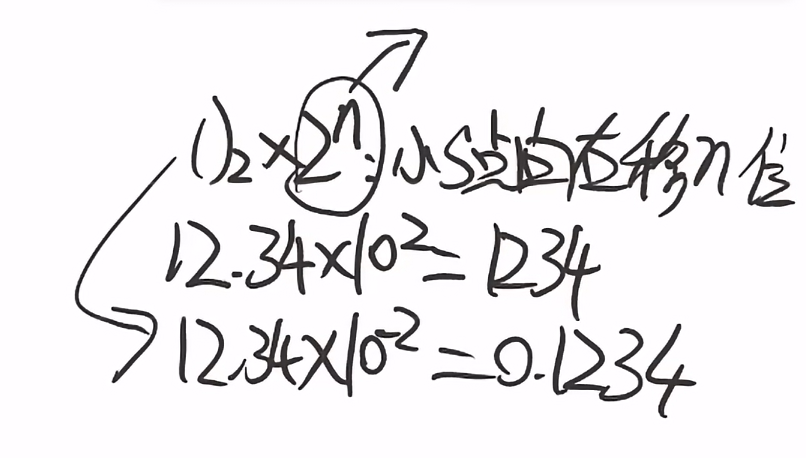 ()₂×2ⁿ:小S点向右移n位
12.34×10²=1234
12.34×10⁻²=0.1234